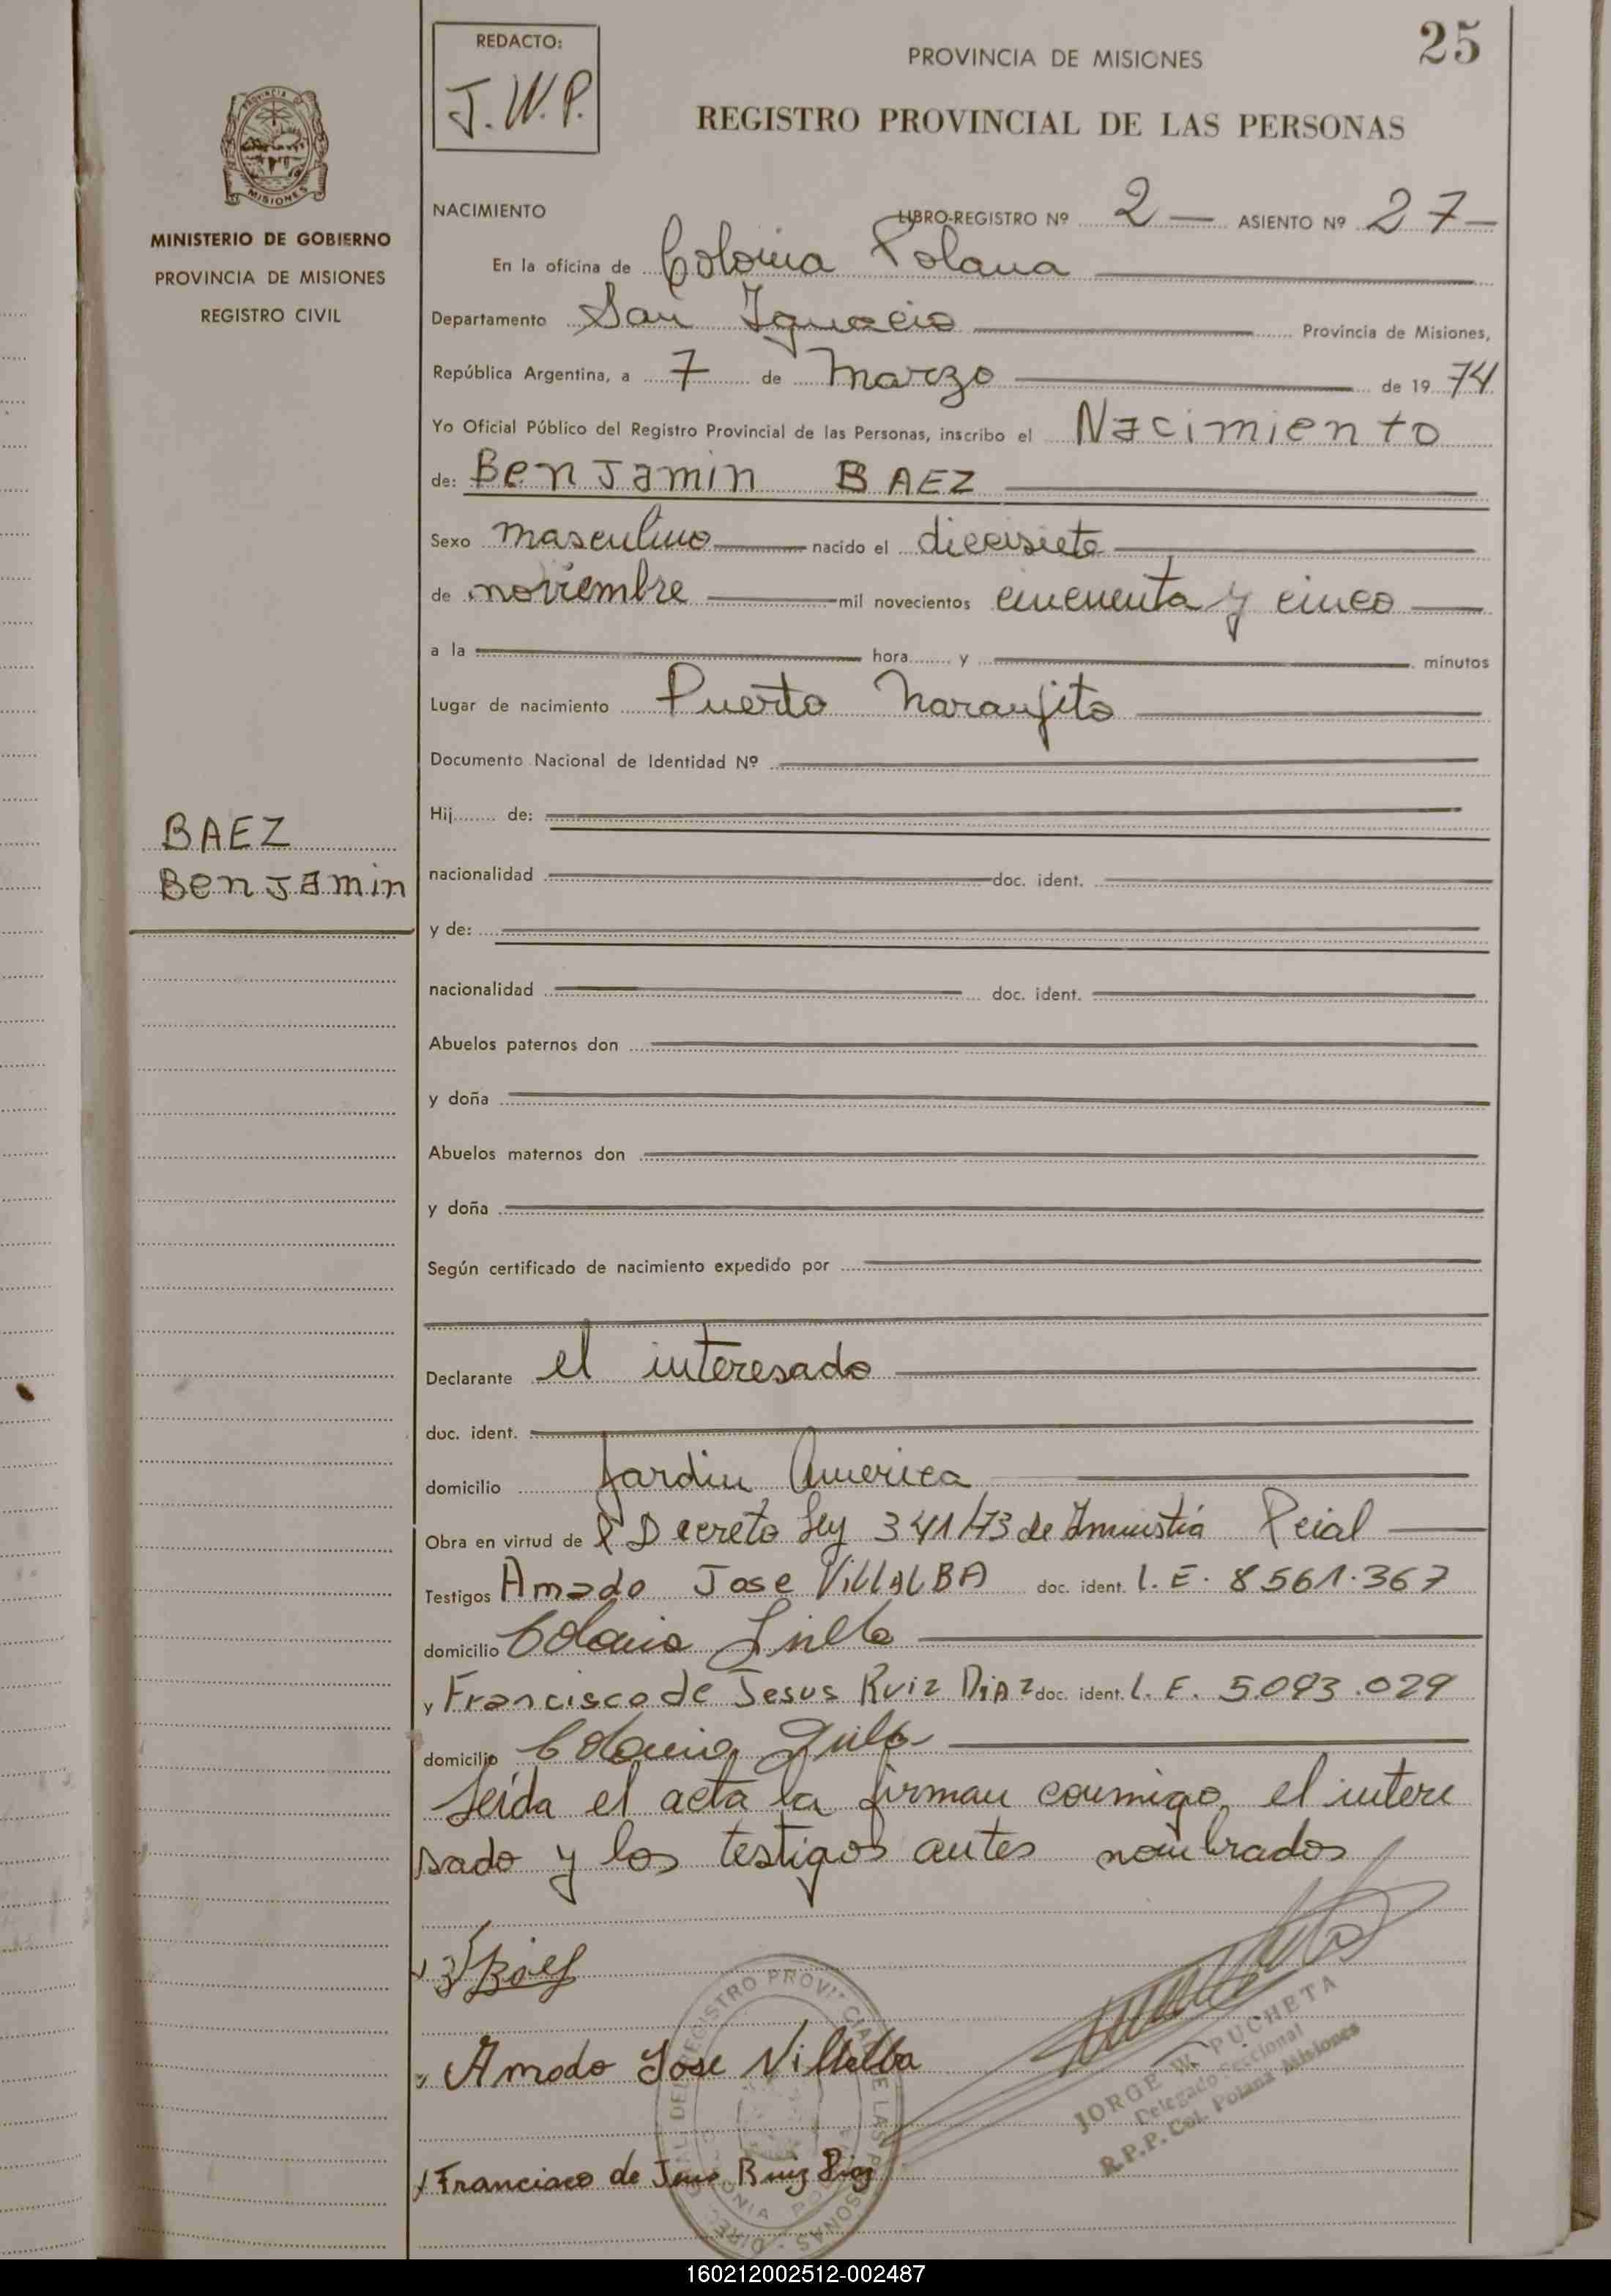 25
REDACTO:
J.W.P.
PROVINCIA DE MISIONES
REGISTRO PROVINCIAL DE LAS PERSONAS
PROVINCIA
MISIONES
MINISTERIO DE GOBIERNO
PROVINCIA DE MISIONES
REGISTRO CIVIL
BAEZ
Benjamin
NACIMIENTO LIBRO-REGISTRO Nº 2 — ASIENTO Nº 27 —
En la oficina de Colonia Polana
Departamento San Ignacio Provincia de Misiones,
República Argentina, a 7 de Marzo de 1974
Yo Oficial Público del Registro Provincial de las Personas, inscribo el Nacimiento
de: Benjamin BAEZ
Sexo masculino nacido el diecisiete
de noviembre mil novecientos cincuenta y cinco
a la hora y minutos
Lugar de nacimiento Puerto Naranjito
Documento Nacional de Identidad Nº
Hij de:
nacionalidad doc. ident.
y de:
nacionalidad doc. ident.
Abuelos paternos don
y doña
Abuelos maternos don
y doña
Según certificado de nacimiento expedido por
Declarante el interesado
doc. ident.
domicilio Jardin America
Obra en virtud de Decreto Ley 341/73 de
Testigos Amado Jose VillalBA doc. ident. L.E. 8561.367
domicilio Colonia
y Francisco de Jesus Ruiz DiAz doc. ident. L.E. 5.093.029
domicilio Colonia
Leída el acta la firman conmigo, el intere
sado y los testigos antes nombrados
Amado Jose Villalba
Francisco de Jesus Ruiz Diaz
JORGE W. PUCHETA
Delegado Seccional
R.P.P. Col. Polana Misiones
160212002512-002487